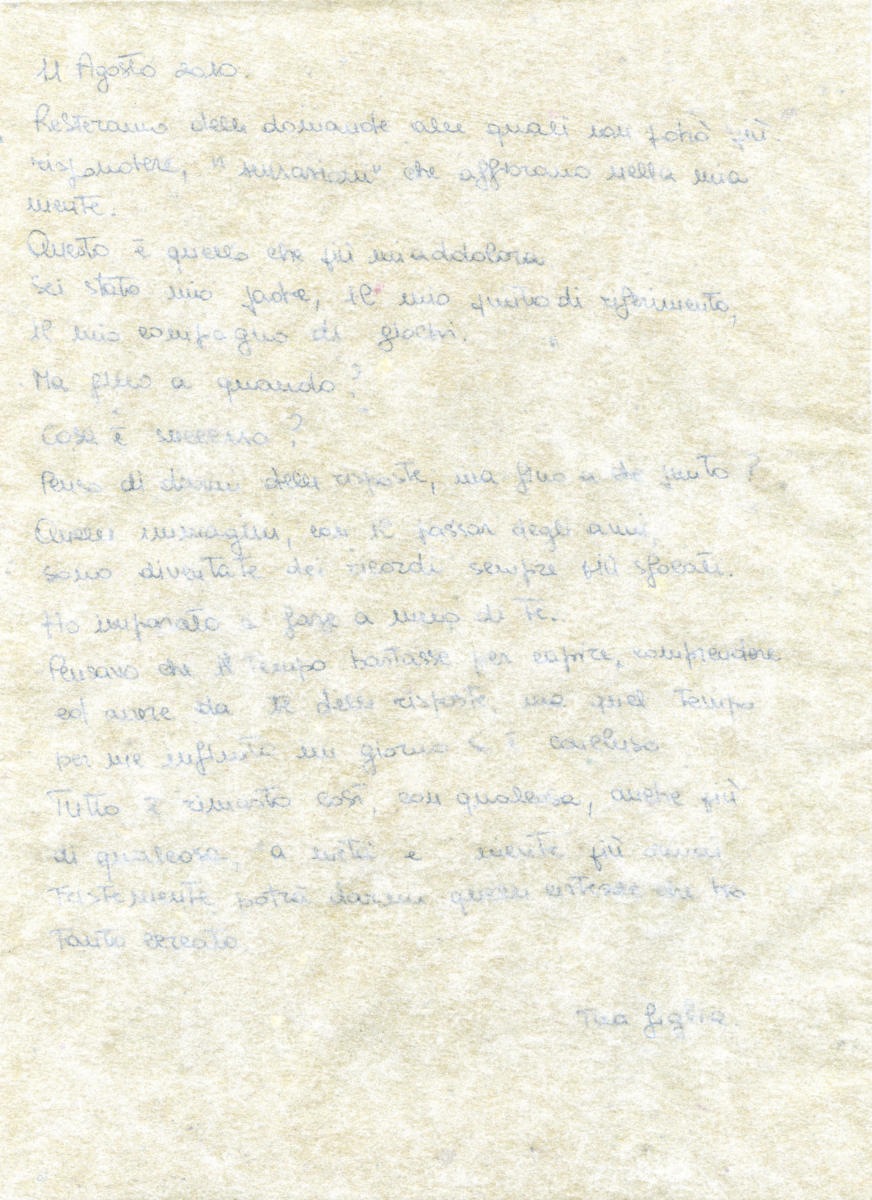 11 Agosto 2010.
Resteranno delle domande alle quali non potrò più
rispondere, "sensazioni" che affiorano nella mia
mente.
Questo è quello che più mi addolora
Sei stato mio padre, il mio punto di riferimento,
il mio compagno di giochi.
Ma fino a quando?
Cosa è successo?
Penso di darmi delle risposte, ma fino a che punto?
Quelle immagini, con il passar degli anni,
sono diventate dei ricordi sempre più sfocati.
Ho imparato a fare a meno di te.
Pensavo che il tempo bastasse per capire, comprendere
ed avere da te delle risposte, ma quel tempo
per me infinito un giorno si è concluso
Tutto è rimasto così, con qualcosa, anche più
di qualcosa, a metà e niente più ormai
Tristemente potrà darmi quelle che ho
tanto cercato
Tua figlia